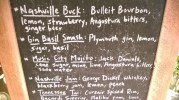 Nashville Buck: Bulleit Bourbon,
lemon, strawberry, Angostura bitters,
ginger beer
Gin Basil Smash: Plymouth gin, lemon,
sugar, basil
Music City Mojito: Jack Daniels,
mint, lime, Angostura
bitters
Nashville Jam: George Dickel whiskey,
blackberry jam, lemon,
Tennessee Tai: Corsair Spiced Rum,
lime